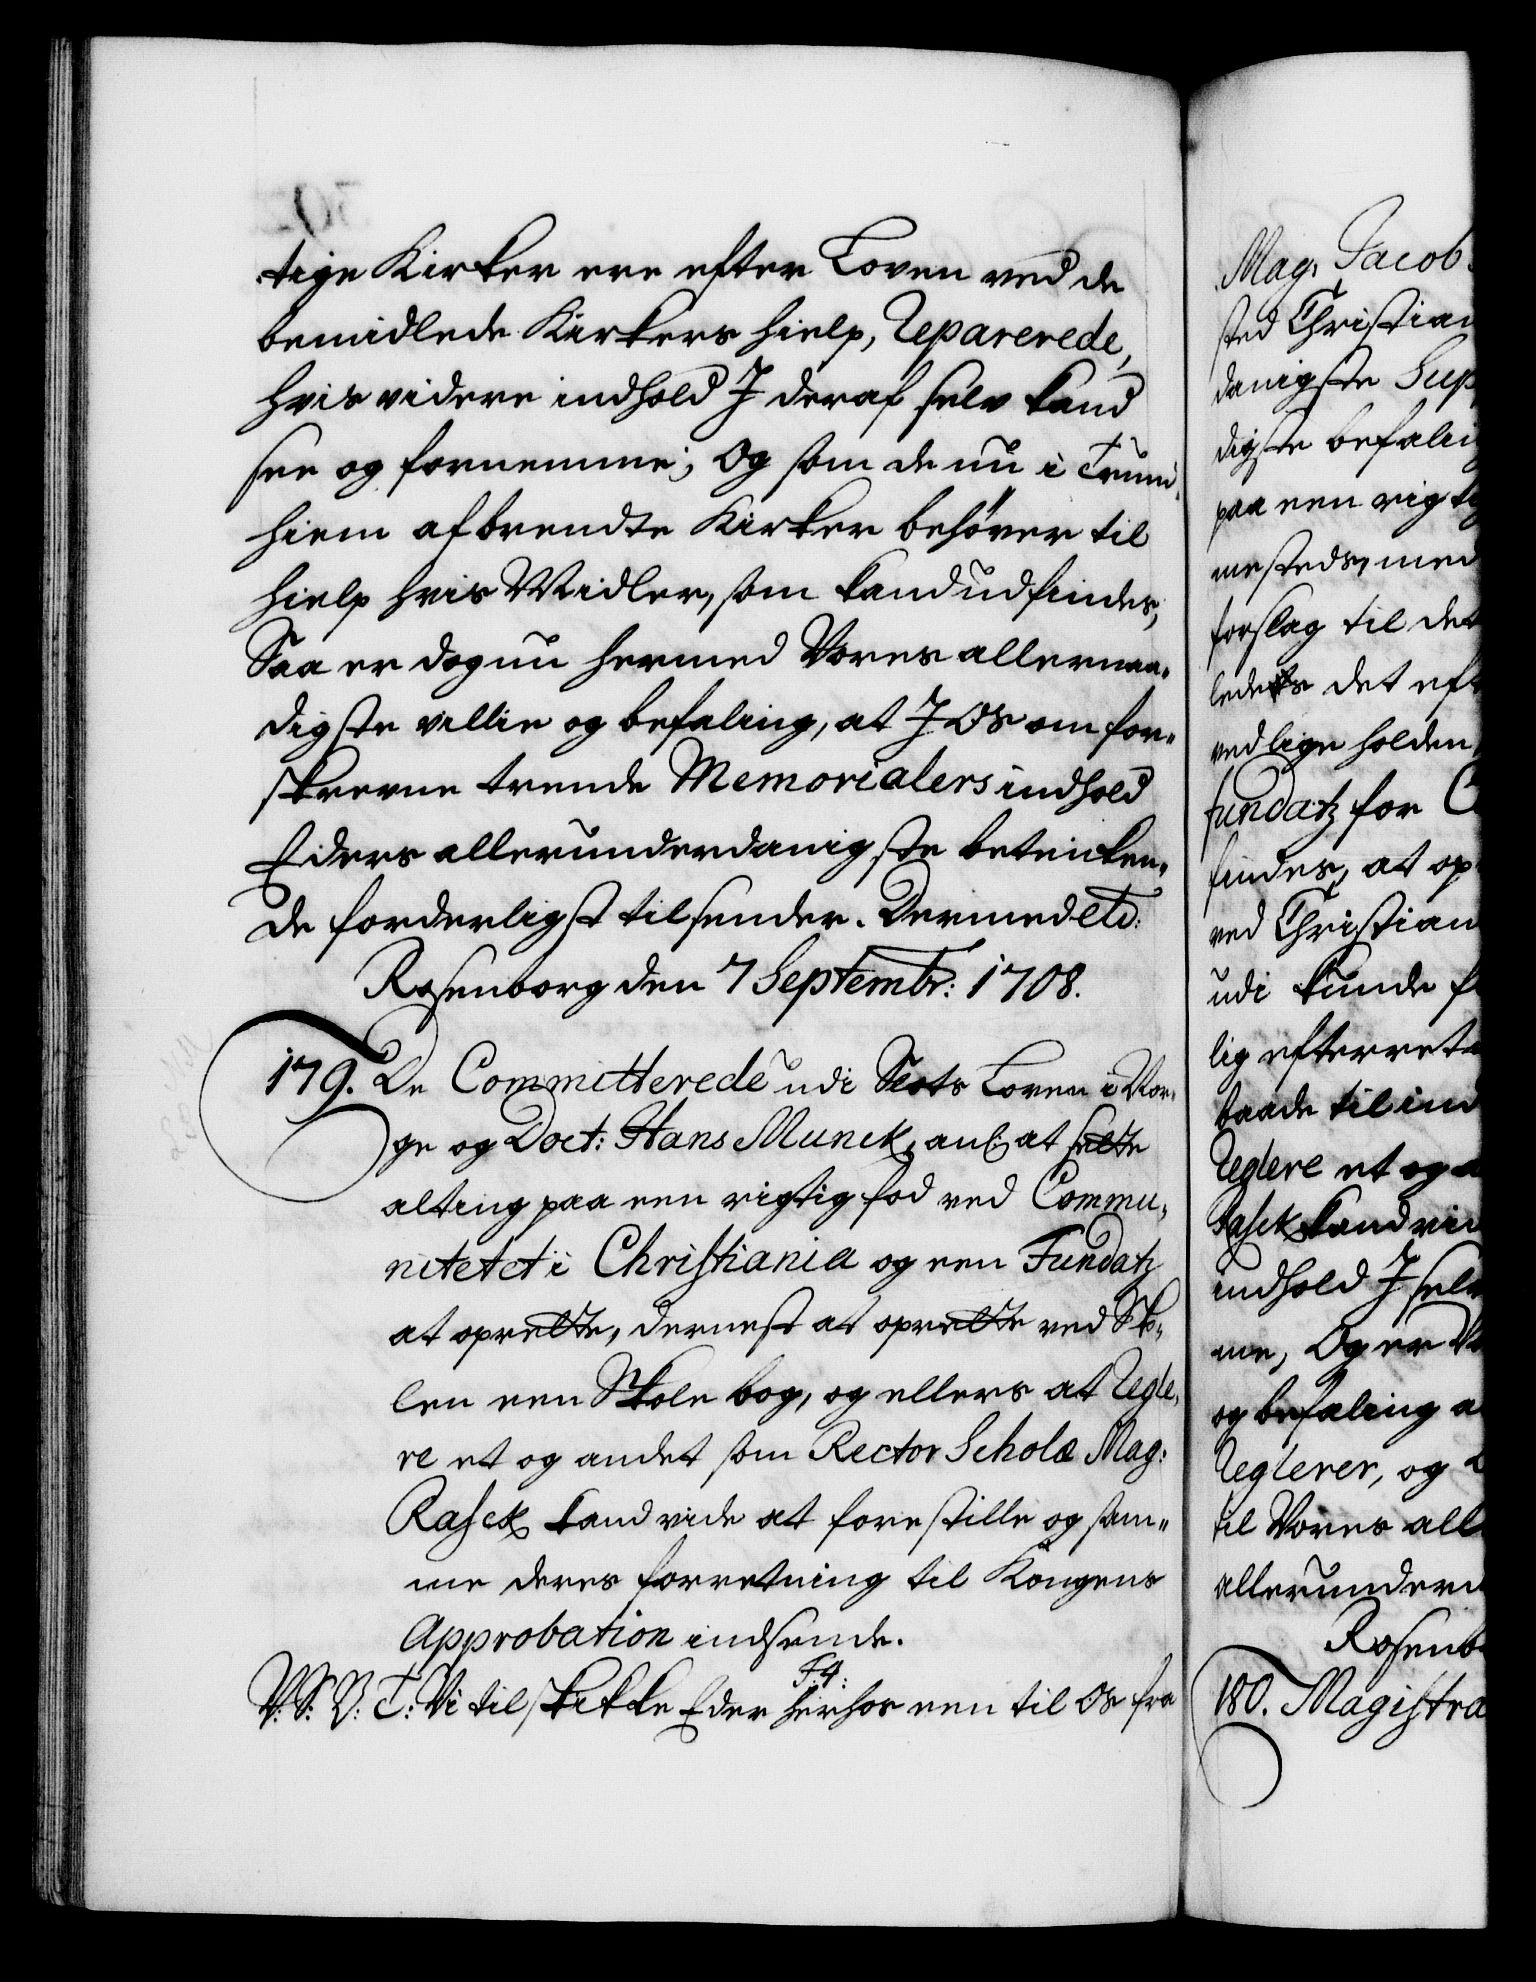 tige Kirker ere efter Loven ved de
bemidlede Kirkers hielp, Reparerede,
hvis videre indhold I deraf selv kand
see og fornemme; Og som de nu i Trund,
hiem afbrendte Kirker behøver til
hielp hvis Midler, som kand udfindes,
Saa er dog nu hermed Vores allernaa„
digste villie og befaling, at I Os om for„
skrevne trende Memorialers indhold
Eders allerunderdanigste betencken„
de forderligst tilsender. Dermed etc:
Rosenborg den 7 Septembr: 1708.
179. De Committerede udi Slots Loven i Nor,
ge og Doct: Hans Munck, anl: at sette
alting paa een rigtig fod ved Commu„
nitetet i Christiania og een Fundatz
at oprette, dernest at oprette ved Sko„
len een Skole bog, og ellers at Regle„
re et og andet som Rector Scholæ Mag:
Rasck kand vide at forestille og sam„
me deres forretning til Kongens
Approbation indsende.
F: 4:
V: S: V: T: Vi tilskikke Eder herhos een til Os fra
Mag: Jacob
sted Christian
danigste Sup
digste befalin
paa een rigtig
mesteds, med
forslag til det
ledes det eft
ved lige holden
fundatz for C
findes, at op
ved Christian
udi kunde f
lig efterrete
baade til ind
Reglere et og a
Rasck kand vid
indhold I selv
me, Og er Vo
og befaling a
Reglerer, og
til Vores all
allerunderd
Rosenb
180. Magistra